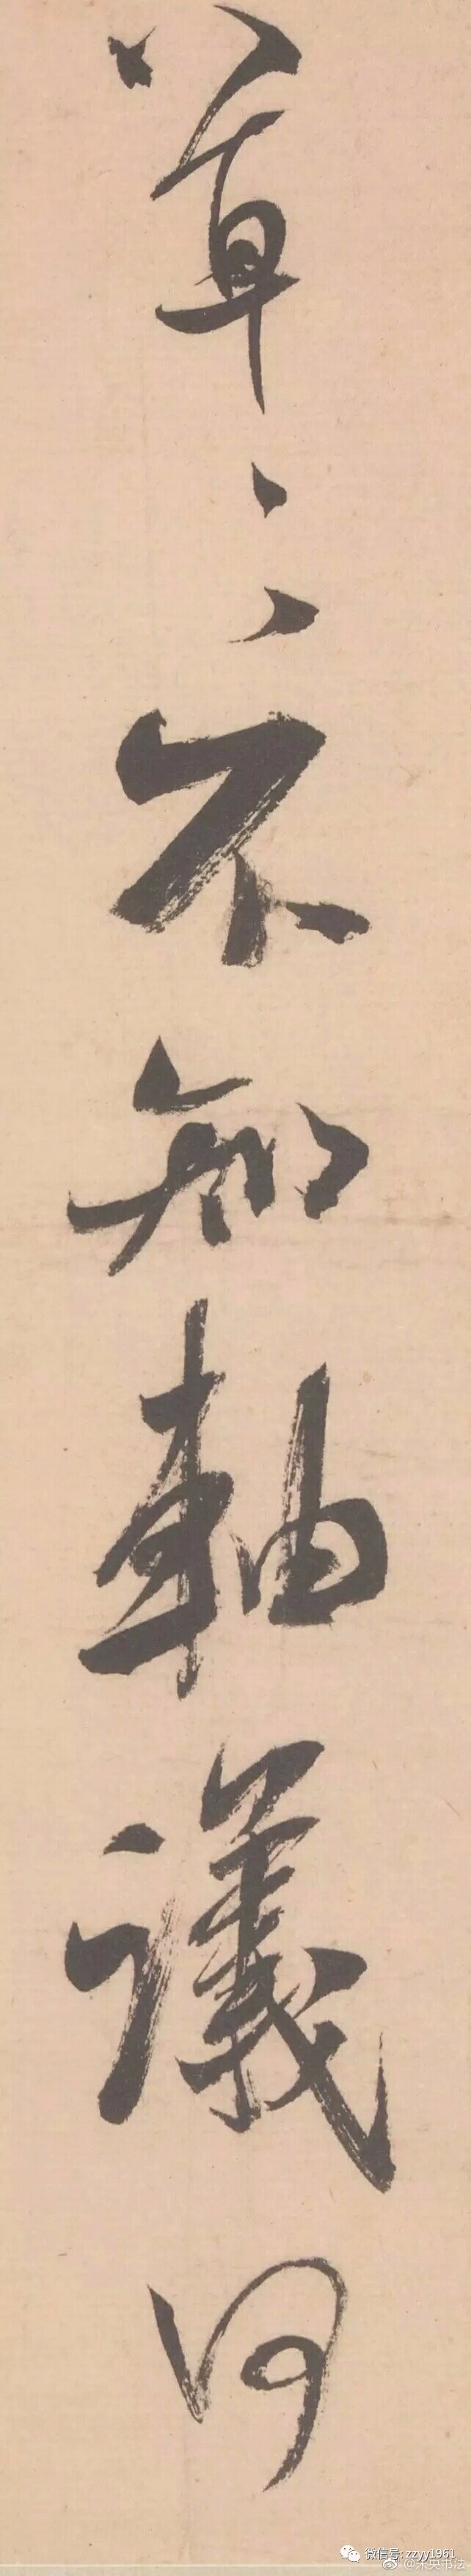 草々不知軸議何
微信号: zzyy1961
@朱英书法